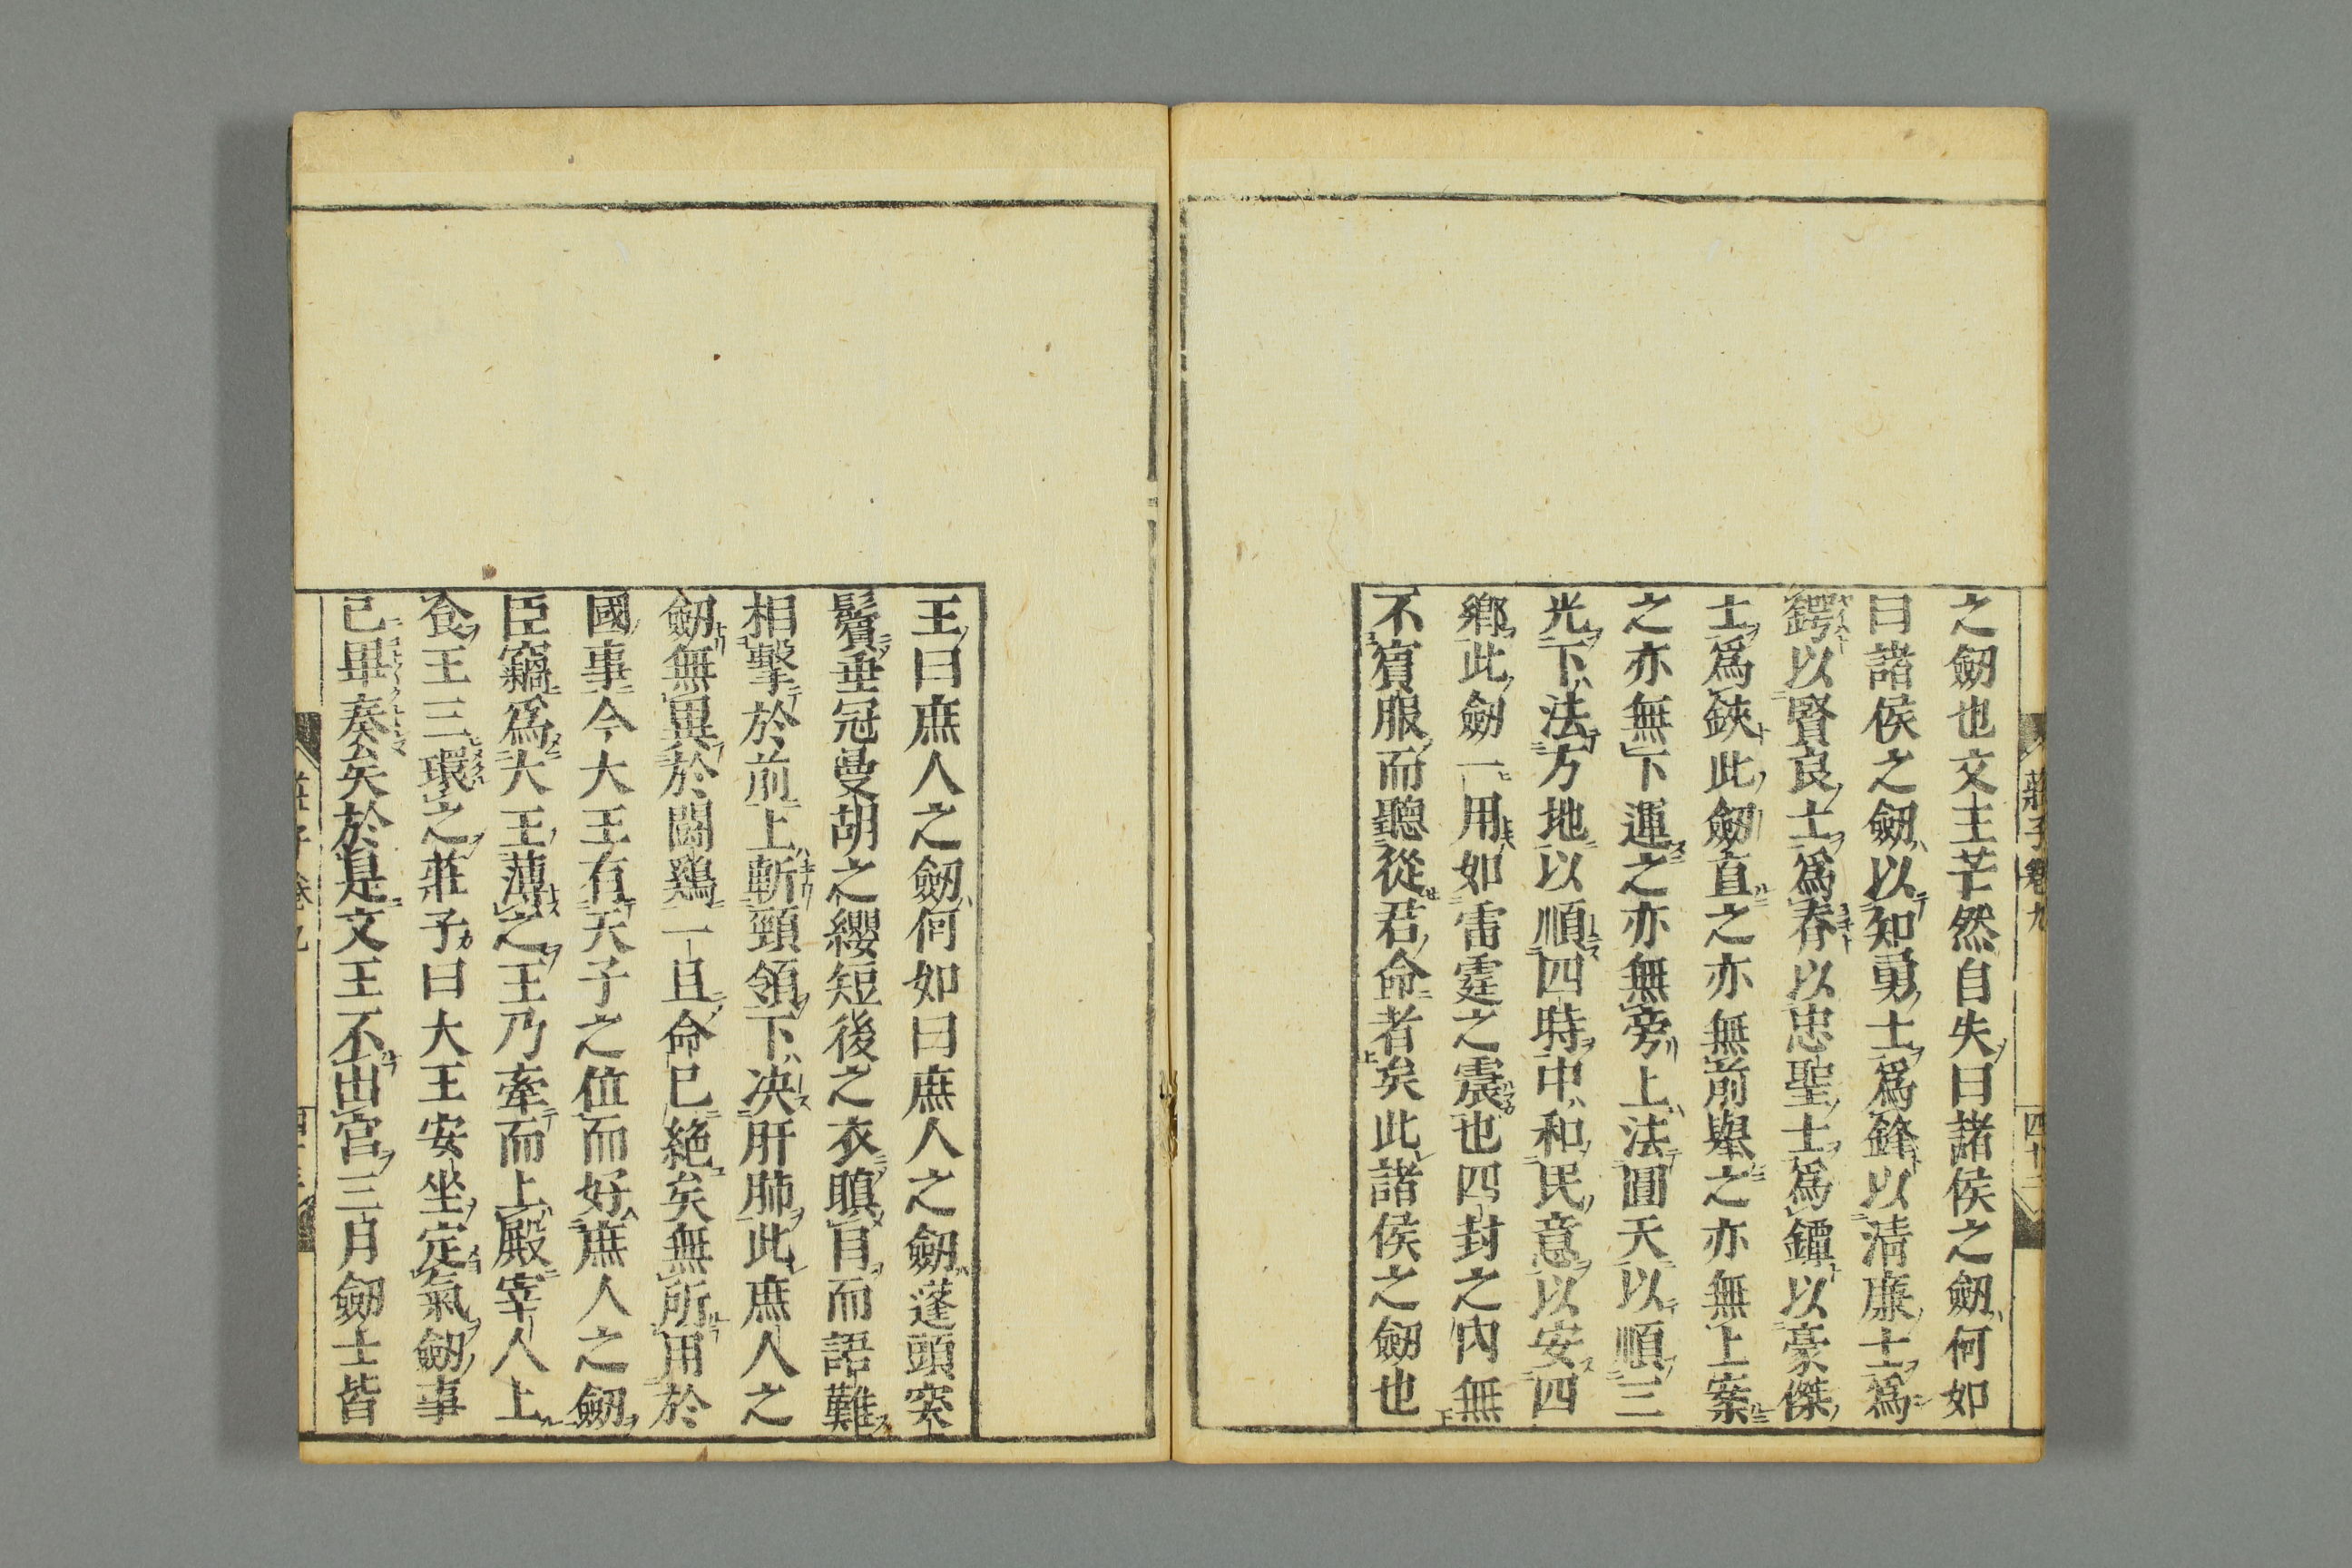 之劒也文王芒然自失曰諸侯之劒何如
曰諸侯之劒以知勇士爲鋒以淸廉士爲
鍔以賢良士爲脊以忠聖士爲鐔以豪傑
士爲鋏此劒直之亦無前舉之亦無上案
之亦無下運之亦無旁上法圓天以順三
光下法方地以順四時中和民意以安四
鄕此劒一用如雷霆之震也四封之內無
不賓服而聽從君命者矣此諸侯之劒也
王曰庶人之劒何如曰庶人之劒蓬頭突
鬢垂冠曼胡之纓短後之衣瞋目而語難
相擊於前上斬頸領下决肝肺此庶人之
劒無異於鬪鷄一旦命已絶矣無所用於
國事今大王有天子之位而好庶人之劒
臣竊爲大王薄之王乃牽而上殿宰人上
食王三環之莊子曰大王安坐定氣劒事
已畢奏矣於是文王不出宮三月劒士皆
莊子卷九